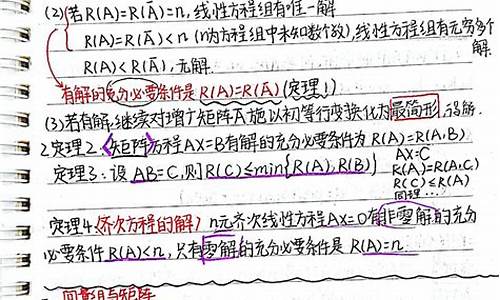 (2)若R(A)=R(Ā)=n,线性方程组有唯一解
R(A)=R(Ā)<n (n为方程组中未知数个数),线性方程组有无穷多个解.
R(A)<R(Ā),无解.
有解的充分必要条件是R(A)=R(Ā)(定理1)
(3)若有解,继续对增广矩阵Ā施以初等行变换化为最简形,得解.
2.定理2.矩阵方程AX=B有解的充分必要条件为R(A)=R(A,B)
定理3:设AB=C,则R(C)≤min{R(A),R(B)}
AX=C
R(A)=R(A,C)
R(C)≤R(A)
同理...
定理4(齐次方程的解) n元齐次线性方程AX=0有非零解的充分
必要条件R(A)<n,只有零解的充分必要条件是R(A)=n.
向量组与矩阵